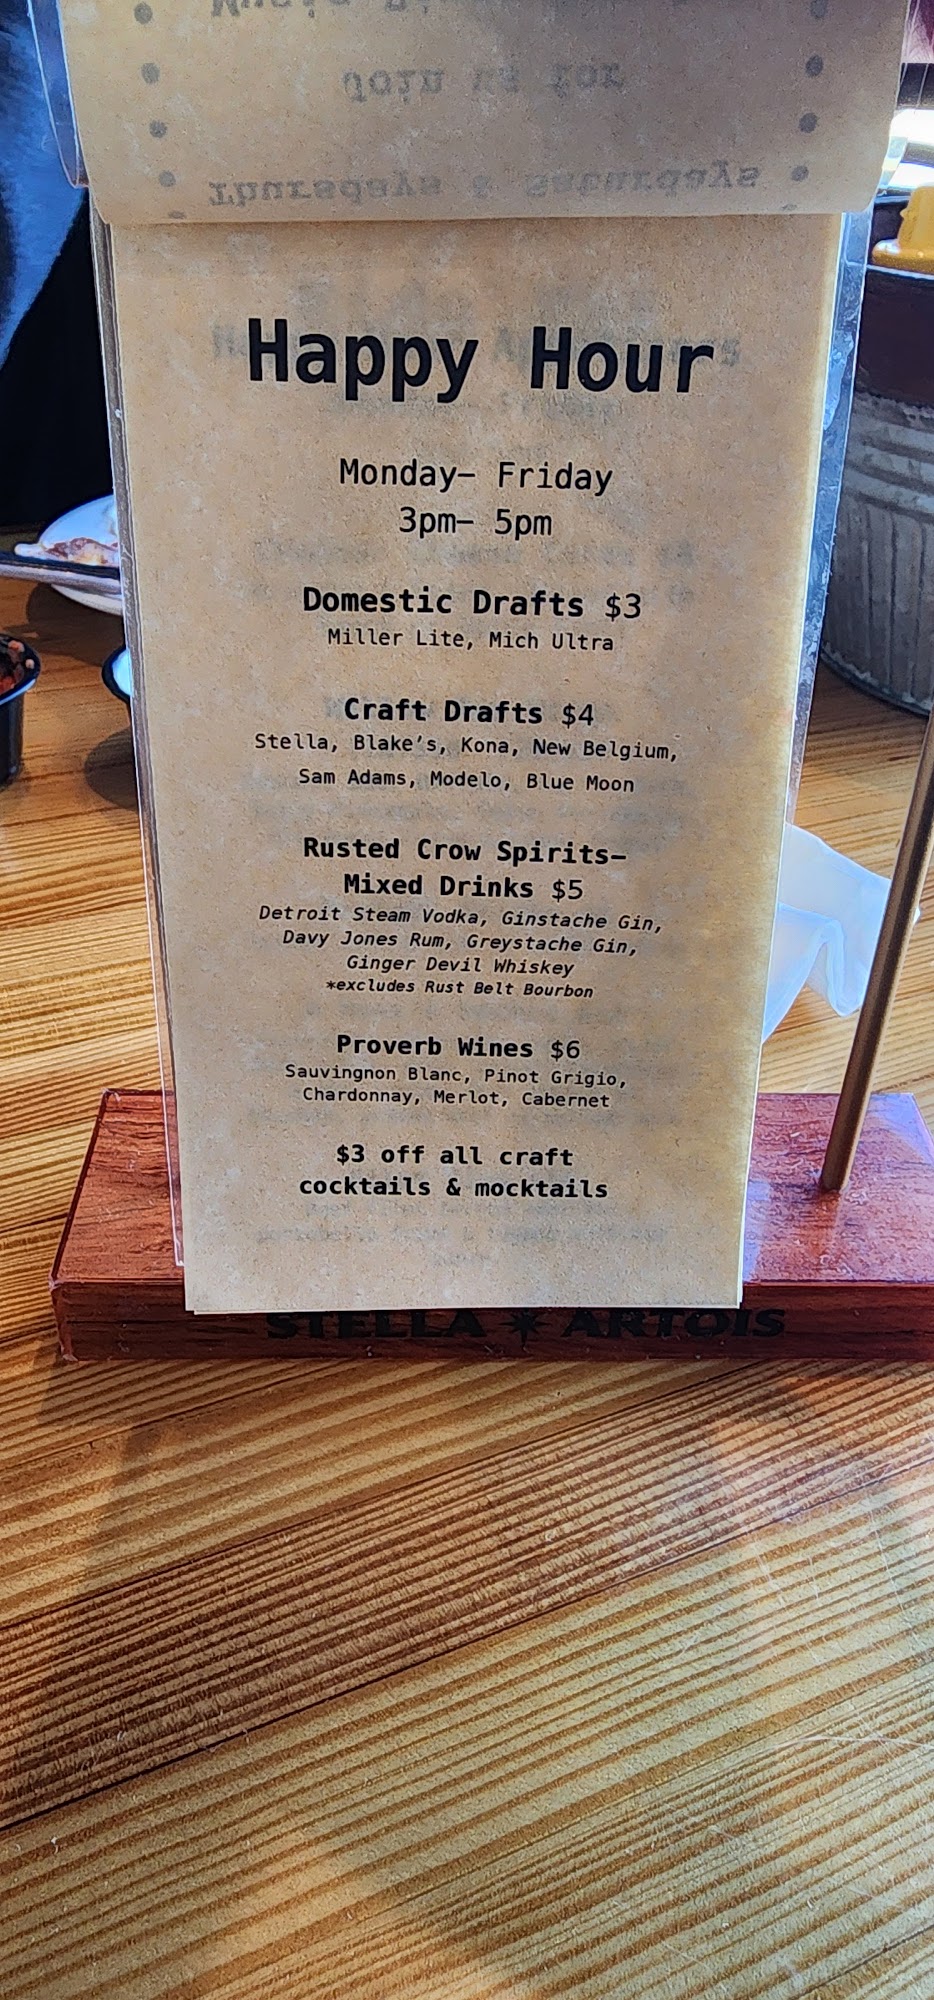 Join us for
Thursdays & Saturdays
Happy Hour
Monday– Friday
3pm– 5pm
Domestic Drafts $3
Miller Lite, Mich Ultra
Craft Drafts $4
Stella, Blake's, Kona, New Belgium,
Sam Adams, Modelo, Blue Moon
Rusted Crow Spirits–
Mixed Drinks $5
Detroit Steam Vodka, Ginstache Gin,
Davy Jones Rum, Greystache Gin,
Ginger Devil Whiskey
*excludes Rust Belt Bourbon
Proverb Wines $6
Sauvingnon Blanc, Pinot Grigio,
Chardonnay, Merlot, Cabernet
$3 off all craft
cocktails & mocktails
STELLA ARTOIS